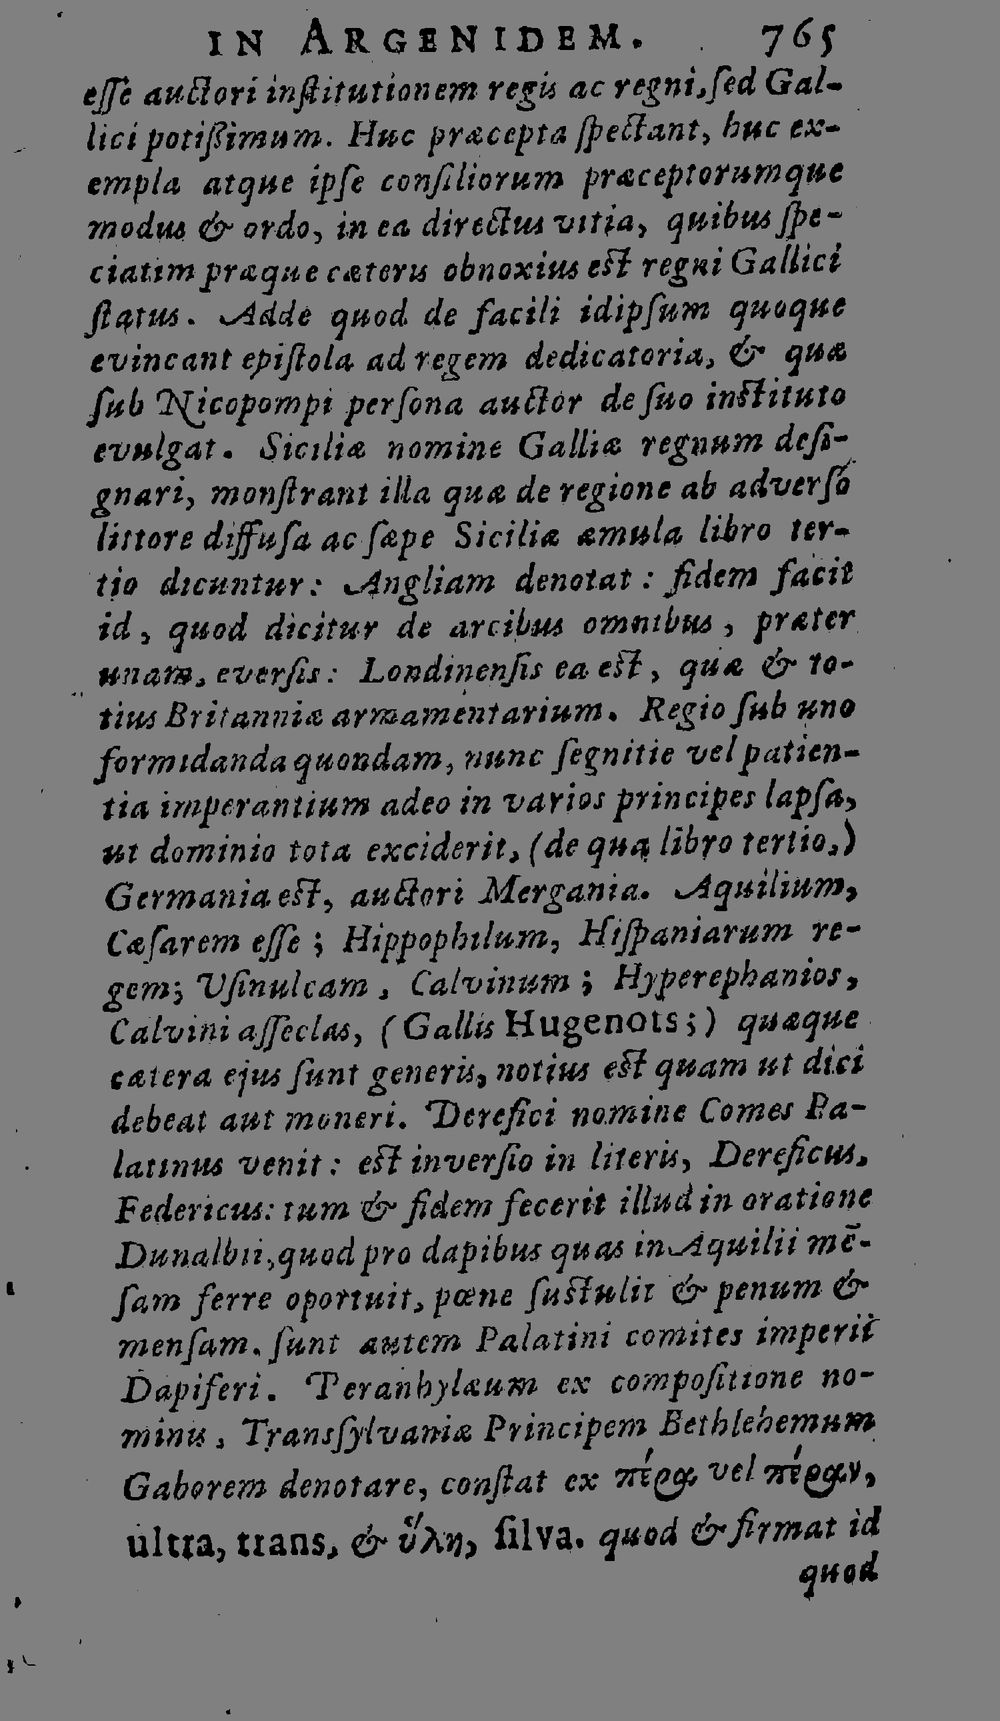 IN ARGENIDEM. 765
esse auctori institutionem regis ac regni, sed Gal-
lici potißimum. Huc præcepta spectant, huc ex-
empla atque ipse consiliorum præceptorumque
modus & ordo, in ea directus vitia, quibus spe-
ciatim præque cæteris obnoxius est regni Gallici
status. Adde quod de facili idipsum quoque
evincant epistola ad regem dedicatoria, & quæ
sub Nicopompi persona auctor de suo instituto
evulgat. Siciliæ nomine Galliæ regnum desi-
gnari, monstrant illa quæ de regione ab adverso
littore diffusa ac sæpe Siciliæ æmula libro ter-
tio dicuntur: Angliam denotat: fidem facit
id, quod dicitur de arcibus omnibus, præter
unam, eversis: Londinensis ea est, quæ & to-
tius Britanniæ armamentarium. Regio sub uno
formidanda quondam, nunc segnitie vel patien-
tia imperantium adeo in varios principes lapsa,
ut dominio tota exciderit, (de qua libro tertio,)
Germania est, auctori Mergania. Aquilium,
Cæsarem esse; Hippophilum, Hispaniarum re-
gem; Usinulcam, Calvinum; Hyperephanios,
Calvini asseclas, (Gallis Hugenots;) quæque
cætera ejus sunt generis, notius est quam ut dici
debeat aut moneri. Derefici nomine Comes Pa-
latinus venit: est inversio in literis, Dereficus,
Federicus: tum & fidem fecerit illud in oratione
Dunalbii, quod pro dapibus quas in Aquilii mē-
sam ferre oportuit, pœne sustulit & penum &
mensam. sunt autem Palatini comites imperii
Dapiferi. Peranhylæum ex compositione no-
minis, Transsylvaniæ Principem Bethlehemum
Gaborem denotare, constat ex πέρα vel πέραν,
ultra, trans, & ὕλη, silva. quod & firmat id
quod